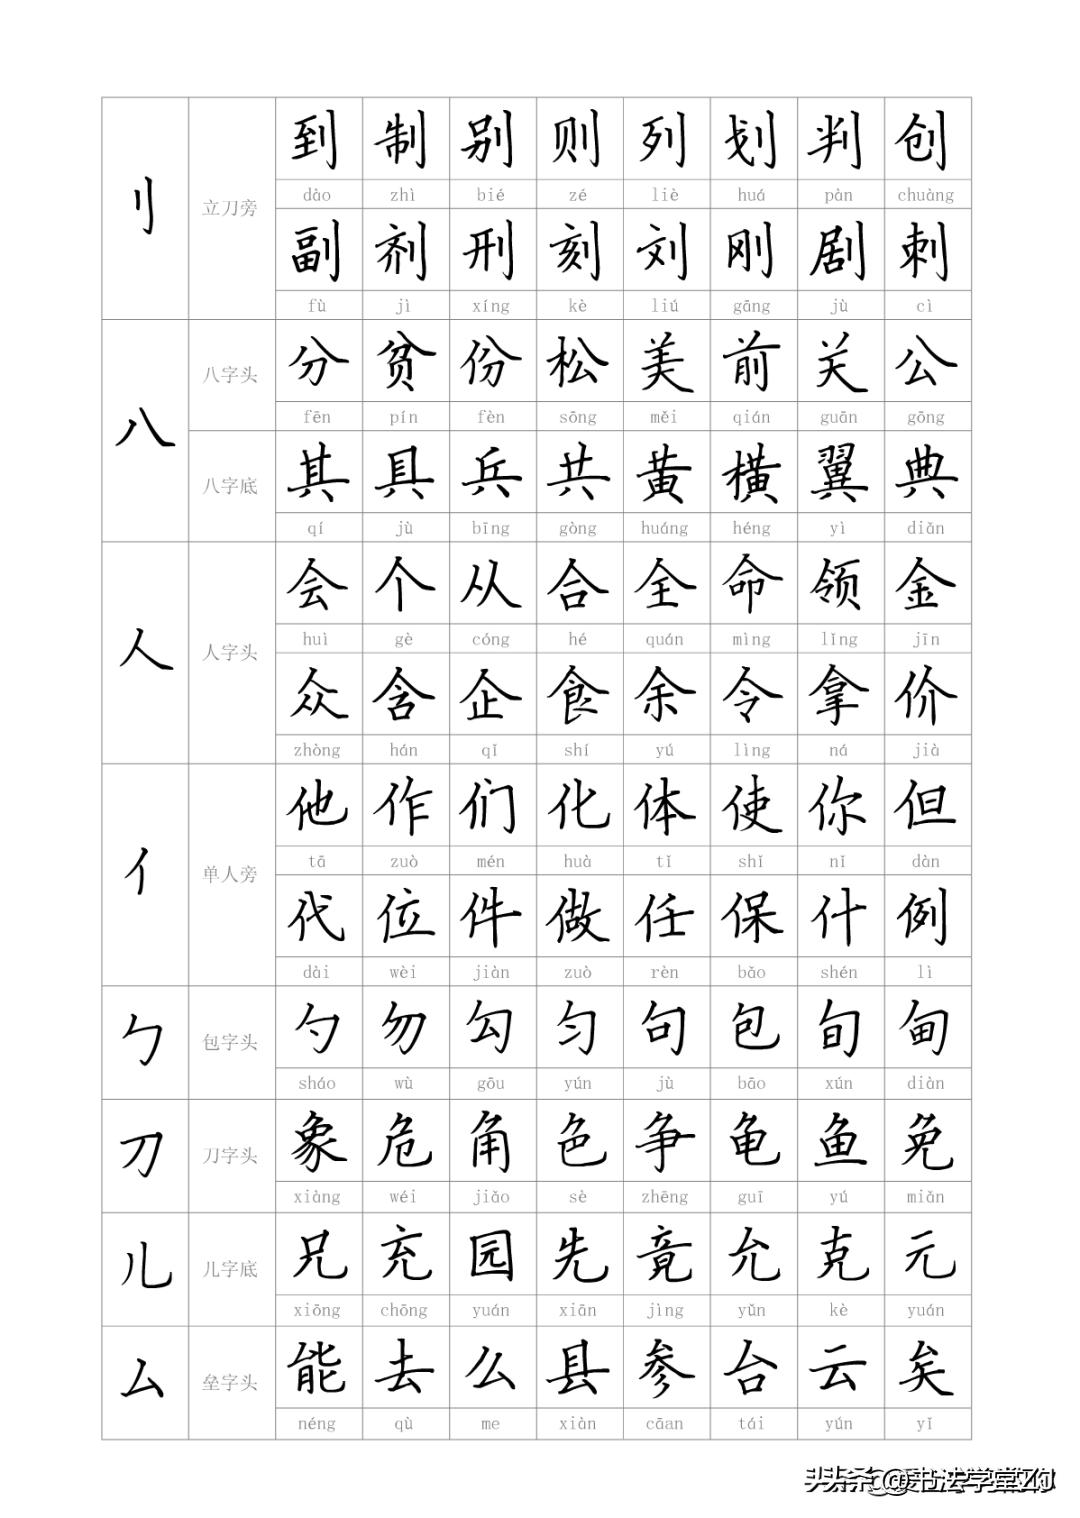 刂 立刀旁
到 制 别 则 列 划 判 创
dào zhì bié zé liè huá pàn chuàng
副 剂 刑 刻 刘 刚 剧 刺
fù jì xíng kè liú gāng jù cì
八
八字头
分 贫 份 松 美 前 关 公
fēn pín fèn sōng měi qián guān gōng
八字底
其 具 兵 共 黄 横 翼 典
qí jù bīng gòng huáng héng yì diǎn
人 人字头
会 个 从 合 全 命 领 金
huì gè cóng hé quán mìng lǐng jīn
众 含 企 食 余 令 拿 价
zhòng hán qǐ shí yú lìng ná jià
亻 单人旁
他 作 们 化 体 使 你 但
tā zuò mén huà tǐ shǐ nǐ dàn
代 位 件 做 任 保 什 例
dài wèi jiàn zuò rèn bǎo shén lì
勹 包字头
勺 勿 勾 匀 句 包 旬 甸
sháo wù gōu yún jù bāo xún diàn
刀 刀字头
象 危 角 色 争 龟 鱼 免
xiàng wéi jiǎo sè zhēng guī yú miǎn
儿 儿字底
兄 充 园 先 竟 允 克 元
xiōng chōng yuán xiān jìng yǔn kè yuán
厶 垒字头
能 去 么 县 参 台 云 矣
néng qù me xiàn cāan tái yún yǐ
头条@爱书法学堂ZQ